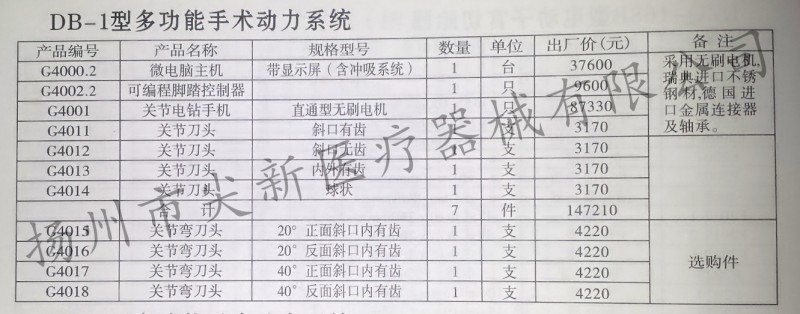 DB-1型多功能手术动力系统
产品编号 产品名称 规格型号 数量 单位 出厂价(元) 备注
G4000.2 微电脑主机 带显示屏(含冲吸系统) 1 台 37600 采用无刷电机,
G4002.2 可编程脚踏控制器 1 只 9600 瑞典进口不锈
G4001 关节电钻手机 直通型无刷电机 1 只 87330 钢材,德国进
口金属连接器
G4011 关节刀头 斜口有齿 1 支 3170 及轴承。
G4012 关节刀头 斜口无齿 1 支 3170
G4013 关节刀头 内外有齿 1 支 3170
G4014 关节刀头 球状 1 支 3170
合计 7 件 147210
G4015 关节弯刀头 20° 正面斜口内有齿 1 支 4220 选购件
G4016 关节弯刀头 20° 反面斜口内有齿 1 支 4220
G4017 关节弯刀头 40° 正面斜口内有齿 1 支 4220
G4018 关节弯刀头 40° 反面斜口内有齿 1 支 4220
扬州市尖新医疗器械有限公司